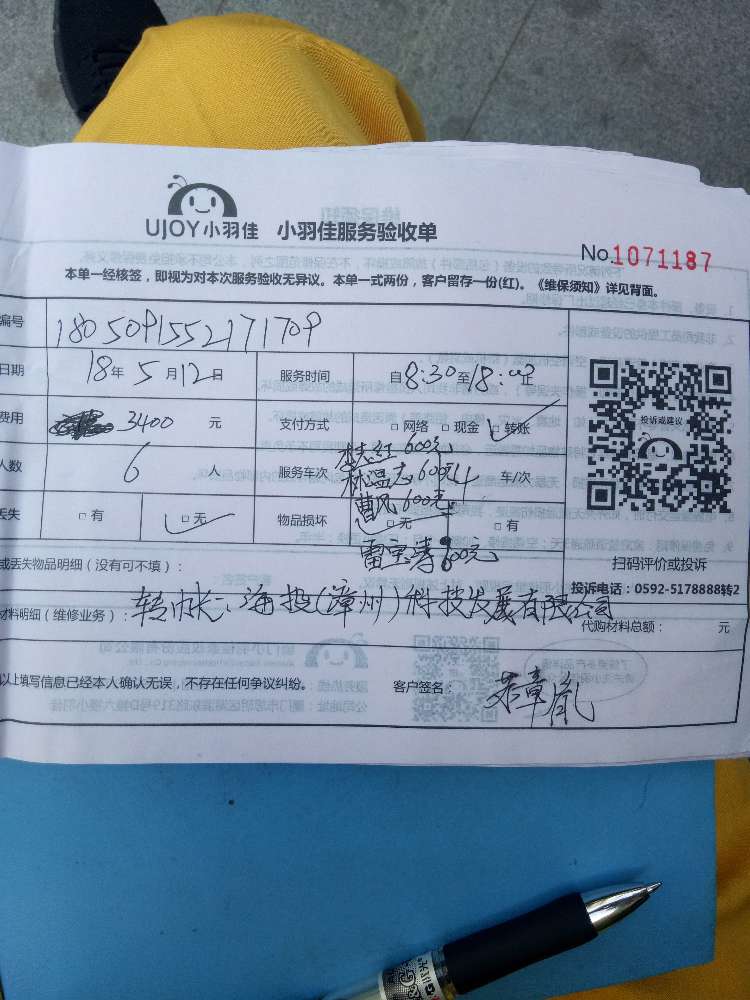 UJOY小羽佳 小羽佳服务验收单
No.1071187
本单一经核签，即视为对本次服务验收无异议。本单一式两份，客户留存一份(红)。《维保须知》详见背面。
编号 1805091552171709
日期 18年5月12日 服务时间 自8:30至18:00止
费用 3400 元 支付方式 □网络 □现金 □转账
投诉或建议
人数 6 人 服务车次 4 车/次
红600元
林温志600元
曹风600元
丢失 □有 □无 物品损坏 □无 □有
雷宝涛600元
或丢失物品明细（没有可不填）：
扫码评价或投诉
投诉电话：0592-5178888转2
材料明细（维修业务）：转帐：海投(漳州)科技发展有限公司
代购材料总额： 元
以上填写信息已经本人确认无误，不存在任何争议纠纷。 客户签名：